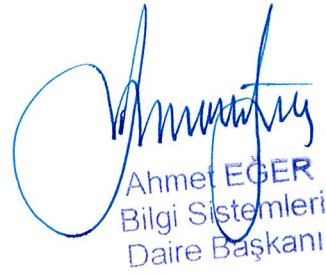 Ahmet EĞER
Bilgi Sistemleri
Daire Başkanı